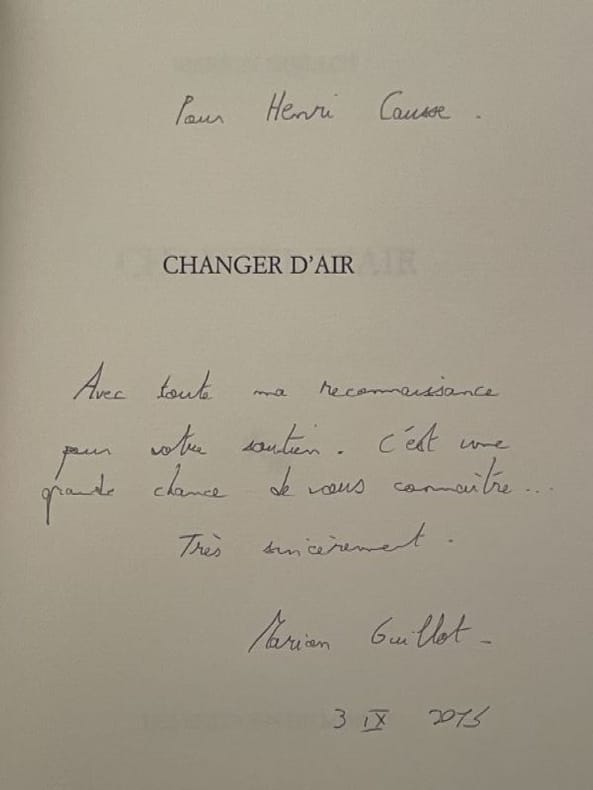 Pour Henri Causse.
CHANGER D'AIR
Avec toute ma reconnaissance
pour votre soutien. C'est une
grande chance de vous connaître...
Très sincèrement.
Marion Guillot -
3 IX 2015